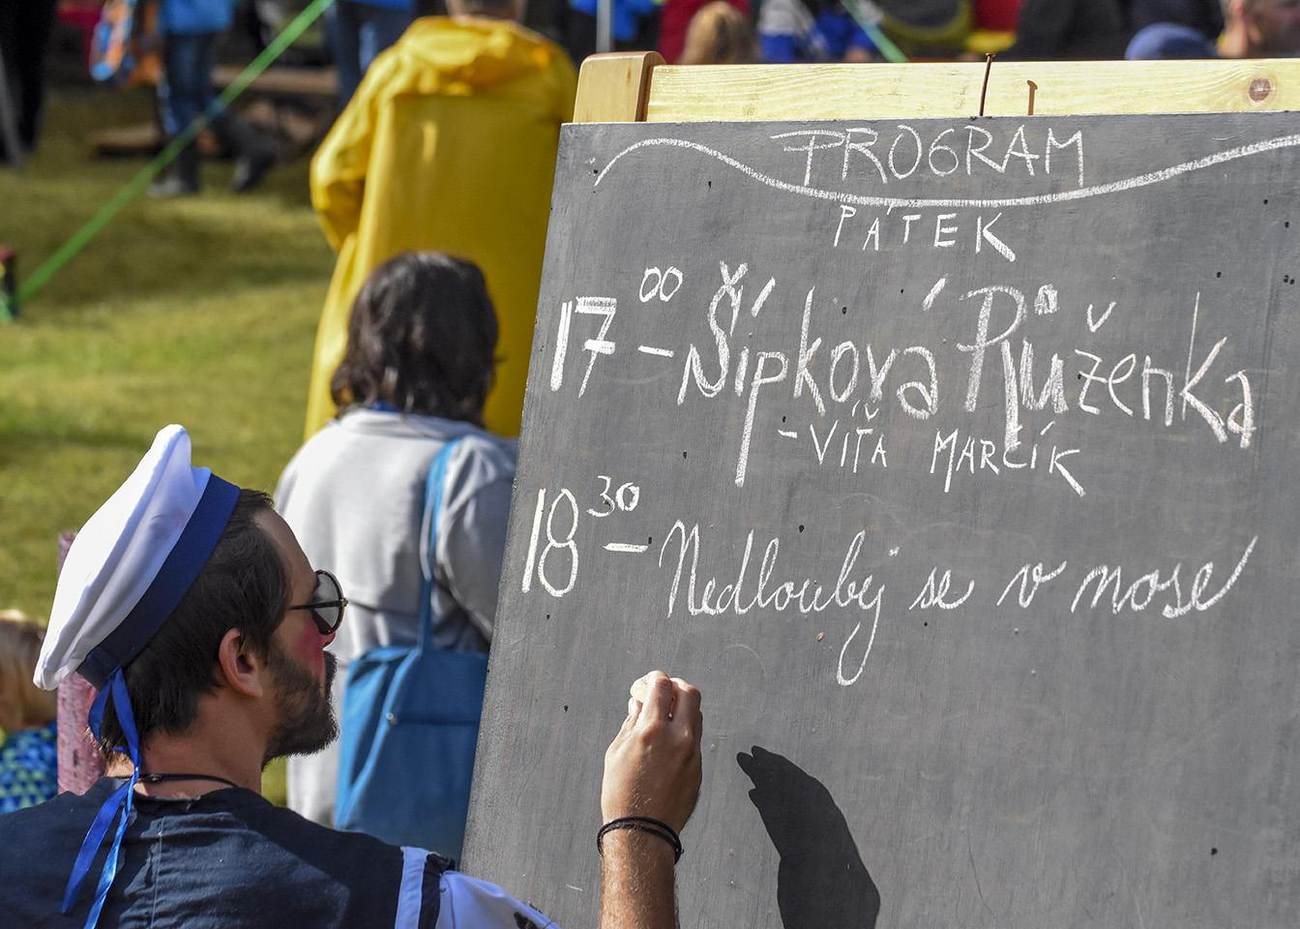 PROGRAM
PÁTEK
17 00 - Šípková Růženka
- VÍŤA MARČÍK
18 30 - Nedloubej se v nose